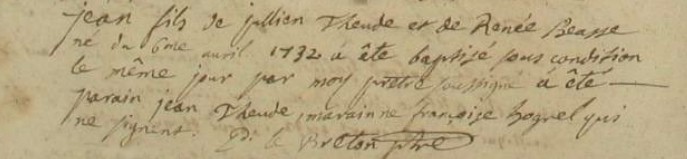 jean fils de jullien Theude et de Renée Beasse
né du 6me avril 1732 à été baptisé sous condition
le même jour par moy prêtre soussigné à été
parain jean Theude, marainne françoise hogrel qui
ne signent. P. le Breton ptre